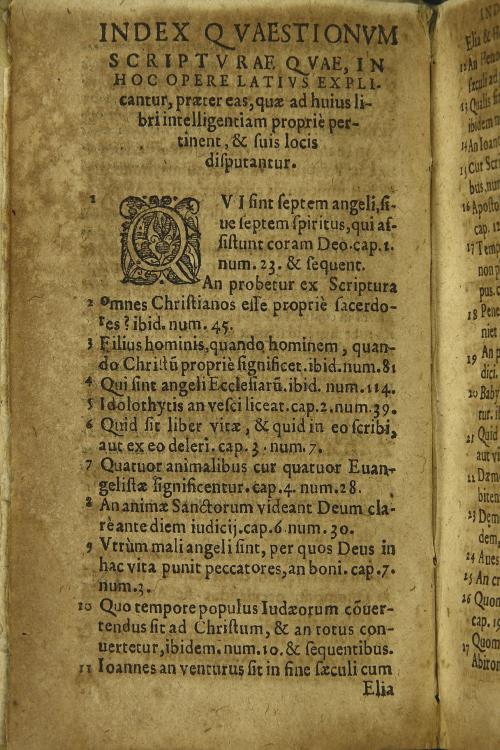 INDEX QVAESTIONVM
SCRIPTVRAE QVAE, IN
HOC OPERE LATIVS EXPLI-
cantur, præter eas, quæ ad huius li-
bri intelligentiam propriè per-
tinent, & suis locis
disputantur.
1 QVI sint septem angeli, si-
ue septem spiritus, qui as-
sistunt coram Deo. cap. 1.
num. 23. & sequent.
An probetur ex Scriptura
2 omnes Christianos esse propriè sacerdo-
tes? ibid. num. 45.
3 Filius hominis, quando hominem, quan-
do Christũ propriè significet. ibid. num. 81
4 Qui sint angeli Ecclesiarũ. ibid. num. 114.
5 Idolothytis an vesci liceat. cap. 2. num. 39.
6 Quid sit liber vitæ, & quid in eo scribi,
aut ex eo deleri. cap. 3. num. 7.
7 Quatuor animalibus cur quatuor Euan-
gelistæ significentur. cap. 4. num. 28.
8 An animæ Sanctorum videant Deum cla-
rè ante diem iudicij. cap. 6 num. 30.
9 Vtrùm mali angeli sint, per quos Deus in
hac vita punit peccatores, an boni. cap. 7.
num. 3.
10 Quo tempore populus Iudæorum cõuer-
tendus sit ad Christum, & an totus con-
uertetur, ibidem. num. 10. & sequentibus.
11 Ioannes an venturus sit in fine sæculi cum
Elia
Elia & H
12 An Heno
sæculi
13 Qualis
ibidem
14 An Ioan
15 Cur Scri
bus, nu
16 Aposto
cap. 12
17 Temp
non p
pus. c
18 Pene
niet
19 An p
dici.
20 Baby
tur. i
21 Quid
aut vi
22 Dæm
biten
23 Dem
dem,
24 Aues
25 An cr
26 Quon
cap. 19
27 Quom
Abiron